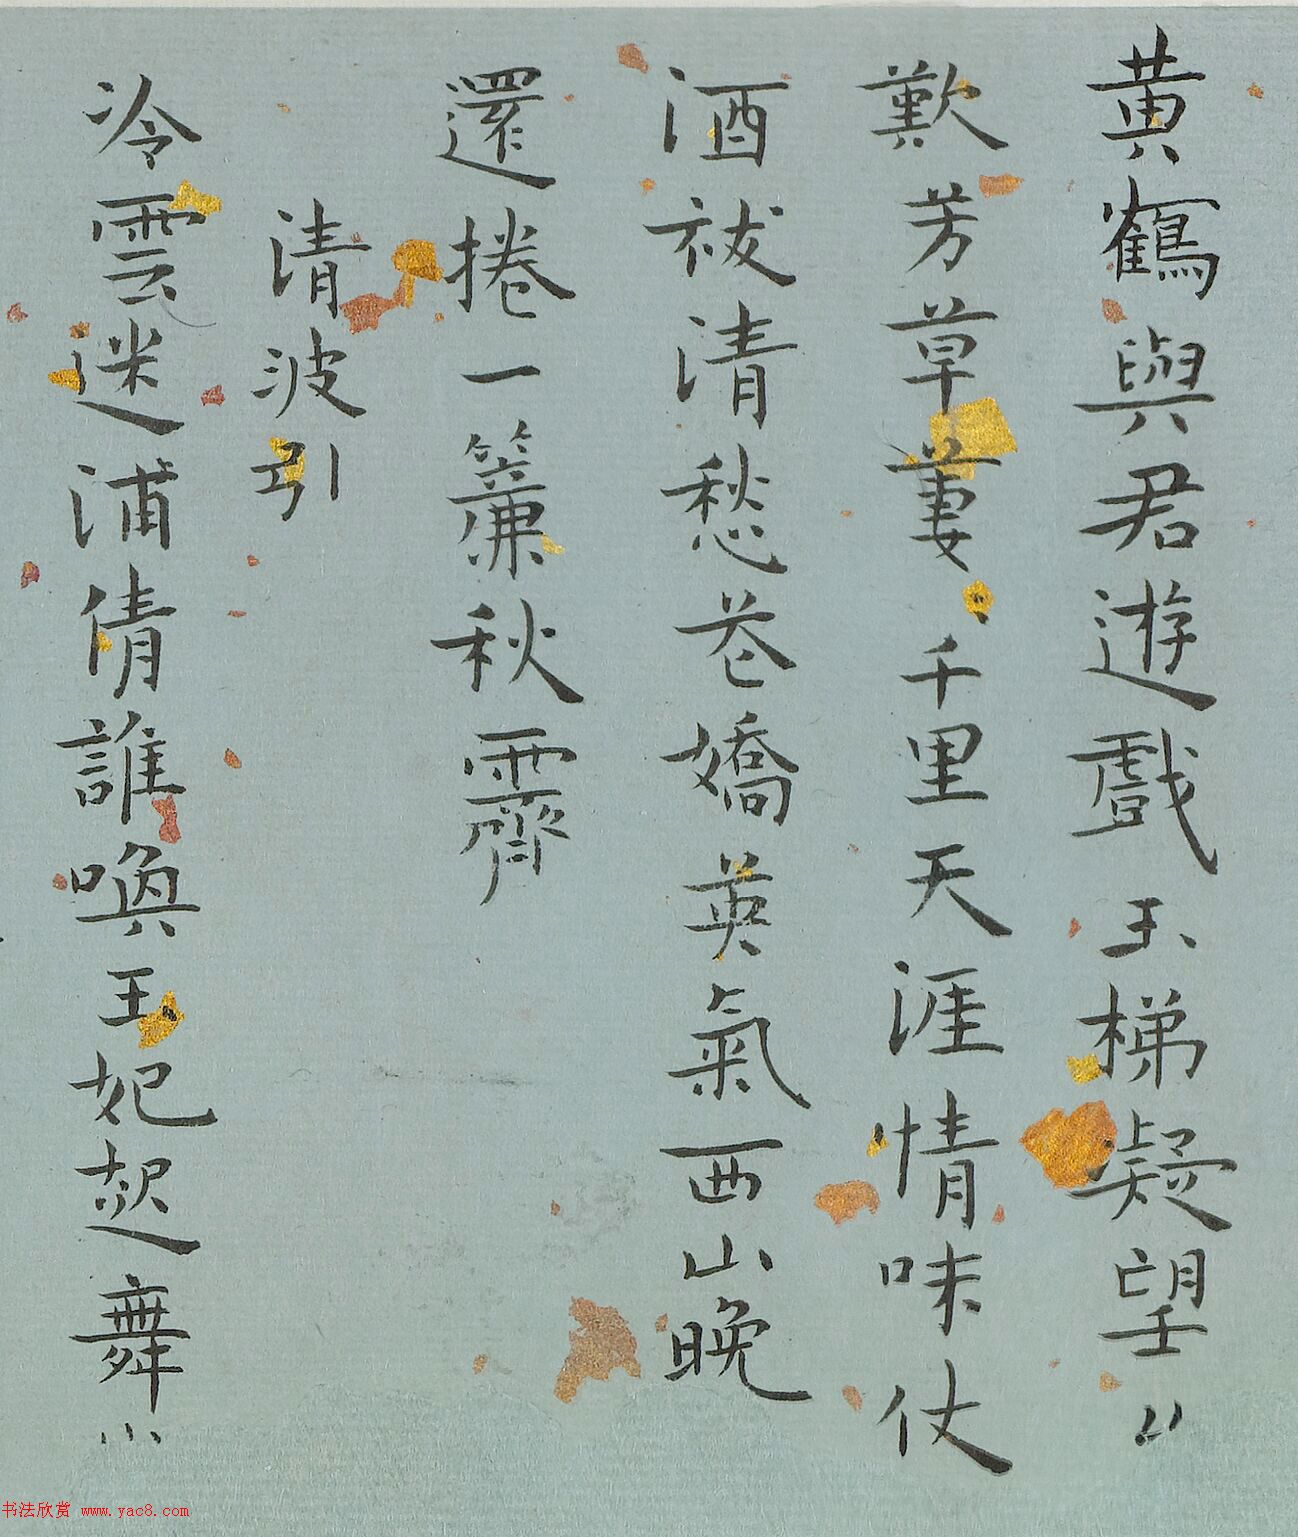 黄鶴與君遊戲玉梯凝望〃
歎芳草萋〻千里天涯情味仗
酒祓清愁花嬌英氣西山晚
還捲一簾秋霽
清波引
冷雲迷浦倩誰喚玉妃起舞小
书法欣赏 www.yac8.com